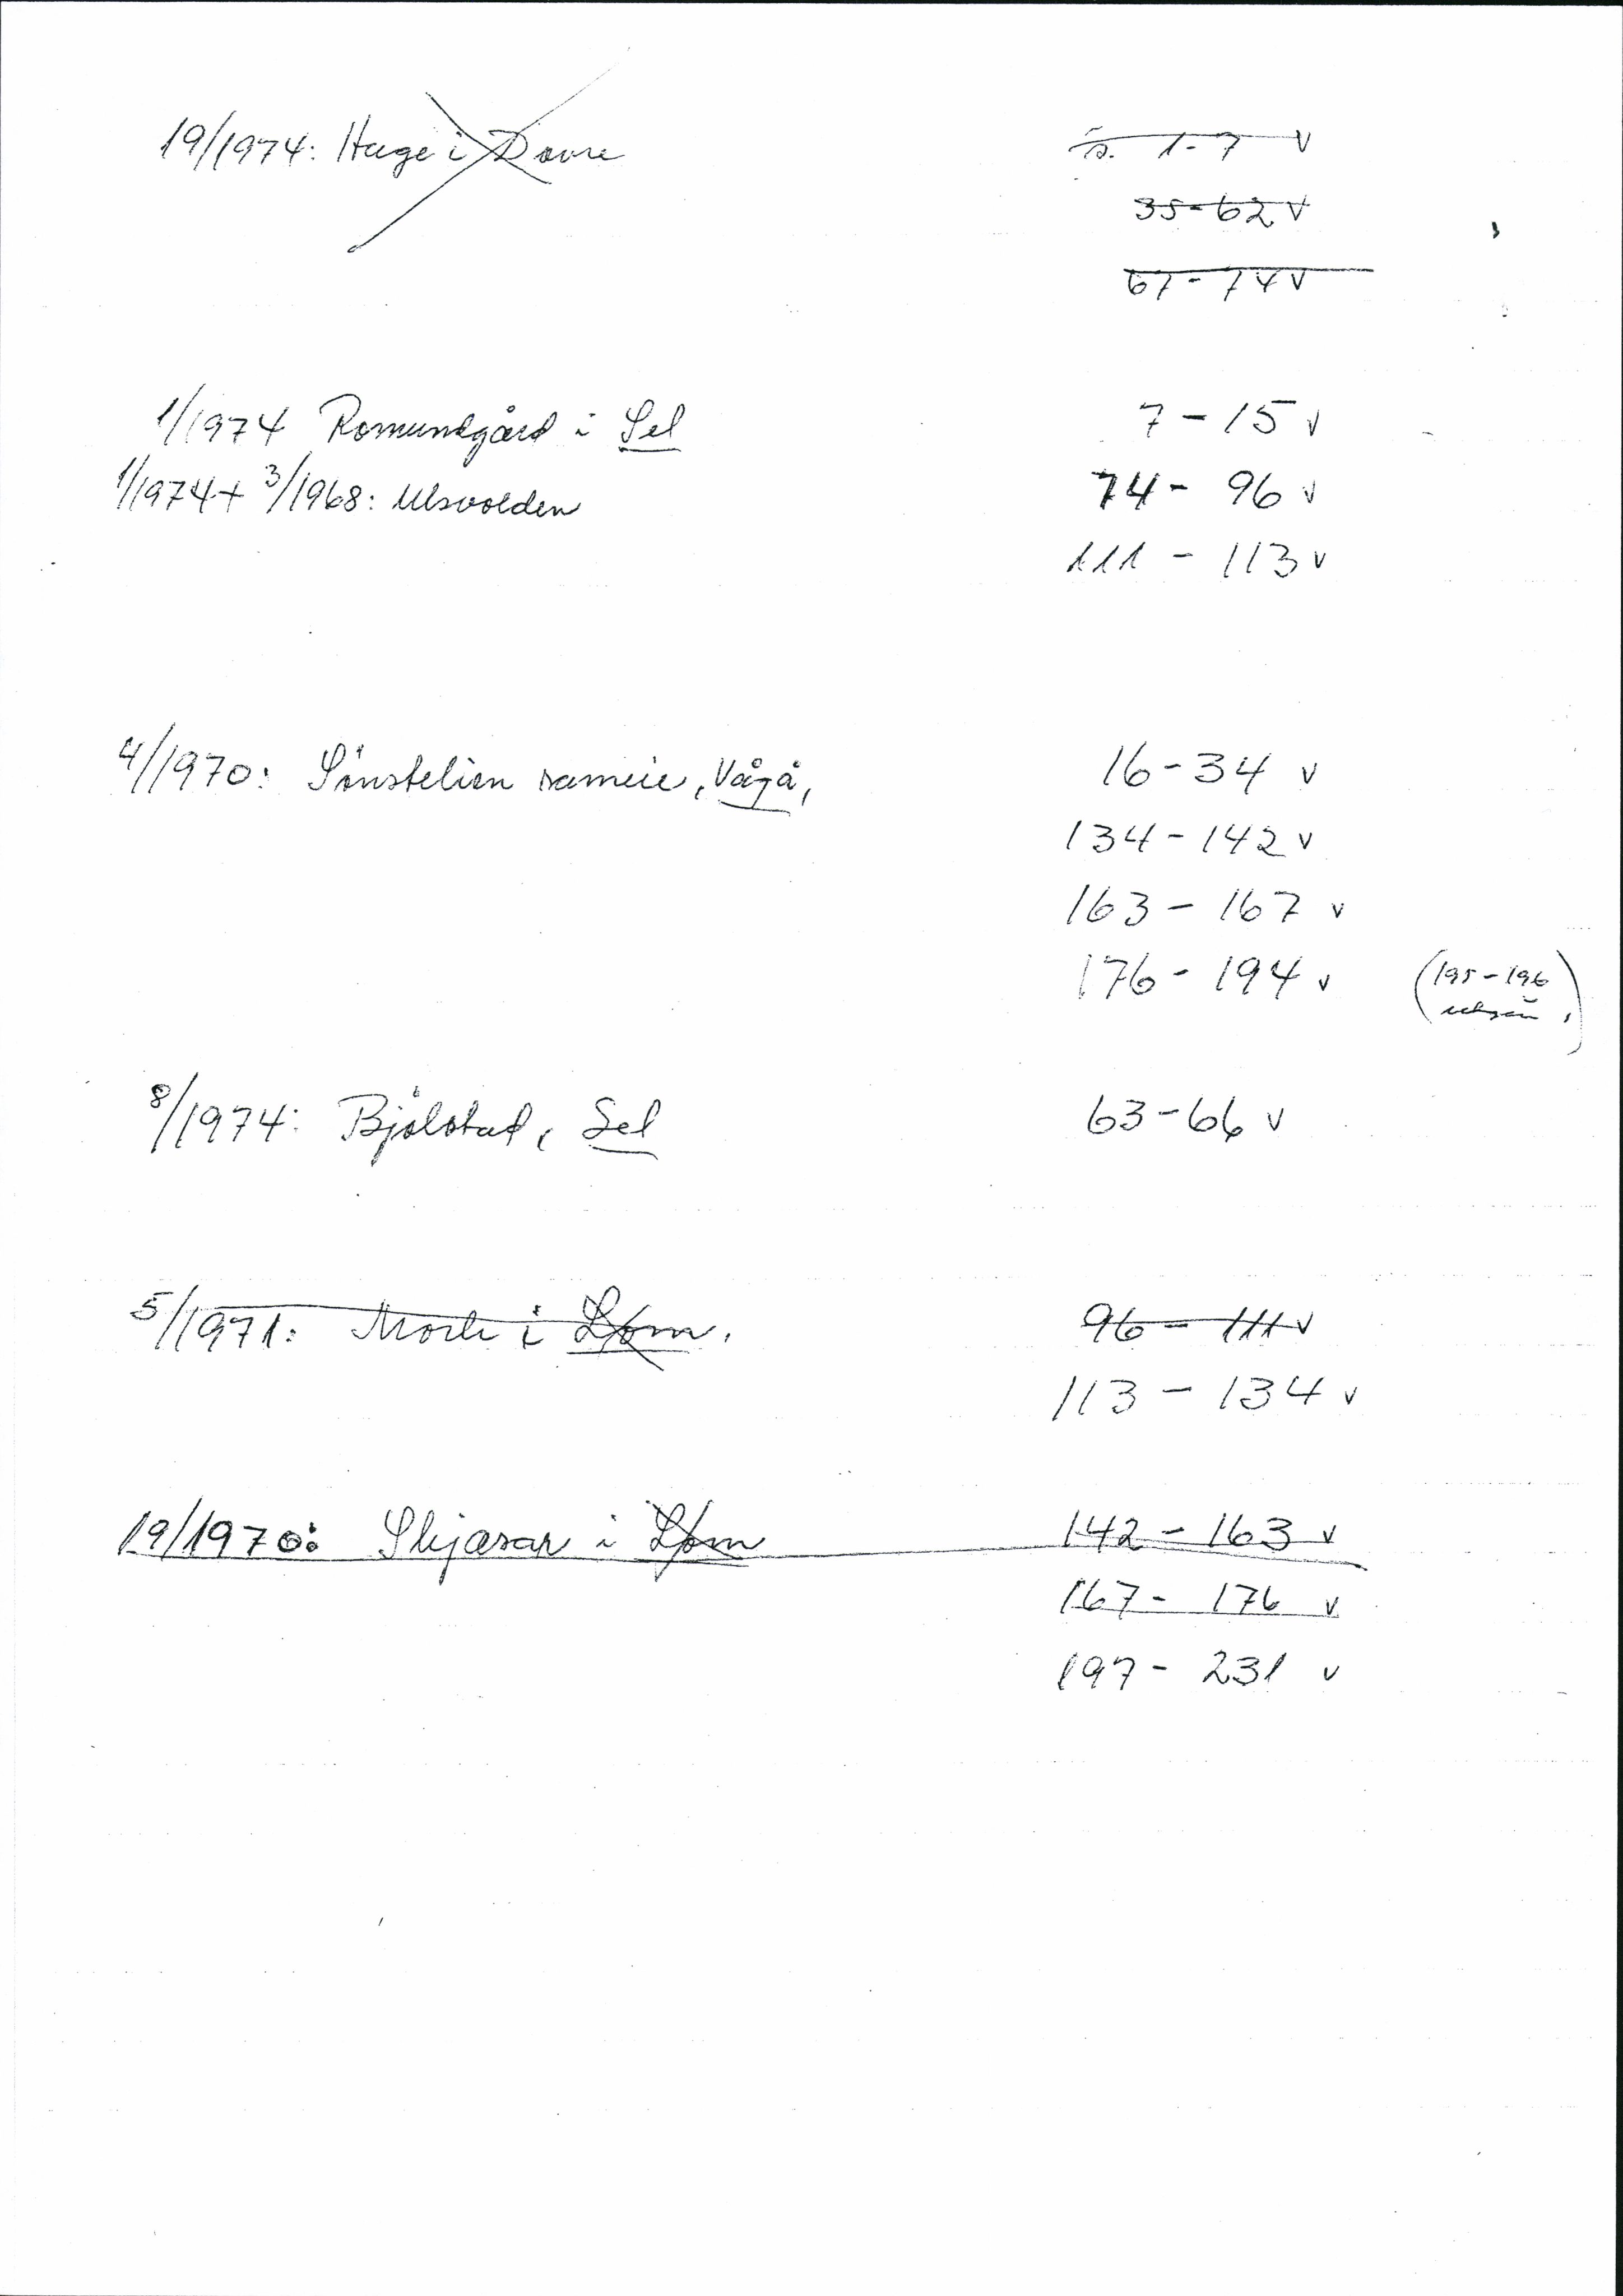 19/1974: Hage i Dovre s. 1-7 v
35-62 v
67-74 v
1/1974 Romundgård i Sel 7-15 v
1/1974 + 3/1968: Ulsvolden 74-96 v
111-113 v
4/1970: Sönstelien sameie, Vågå, 16-34 v
134-142 v
163-167 v
176-194 v (195-196
utgår)
8/1974: Bjölstad, Sel 63-66 v
5/1971: i Lom. 96-111 v
113-134 v
19/1970: Skjæsar i Lom 142-163 v
167-176 v
197-231 v